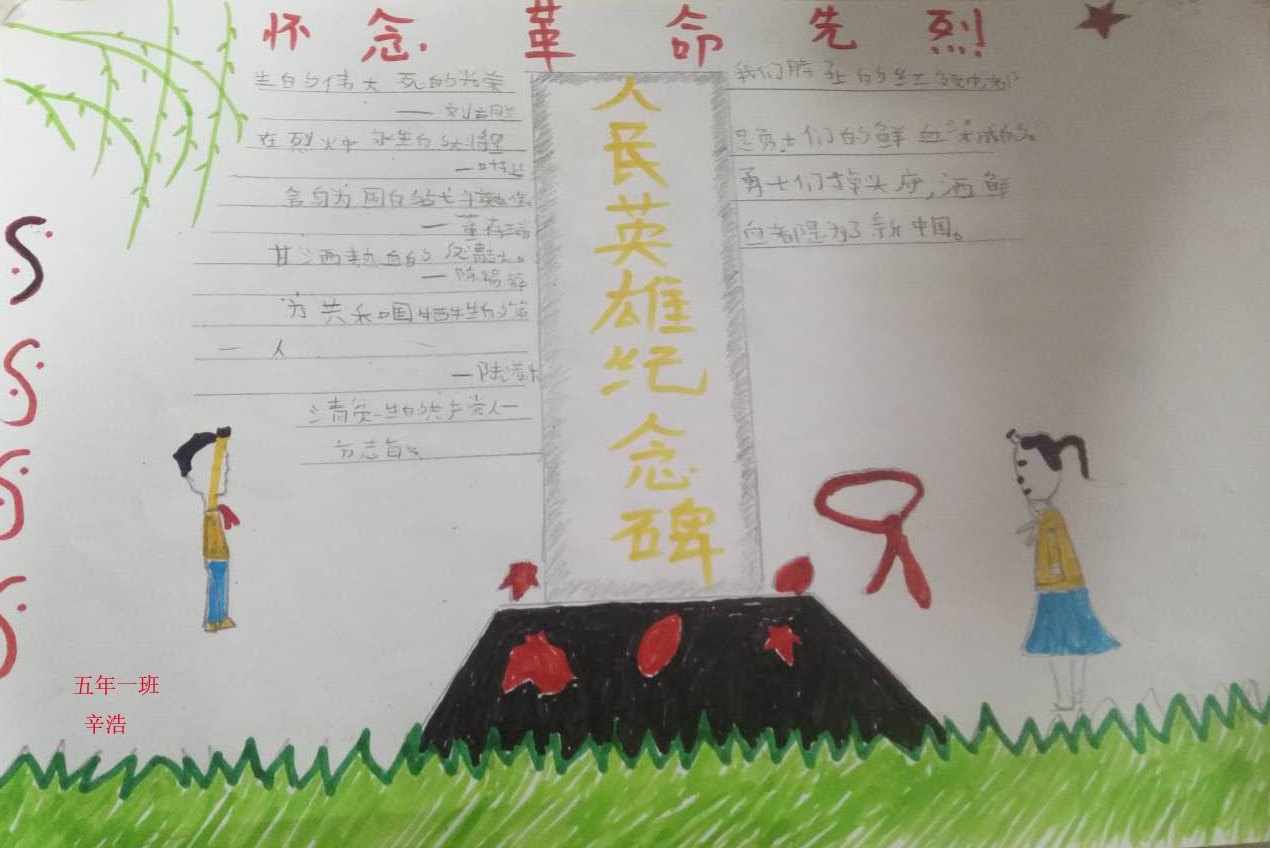 怀念革命先烈
生的伟大 死的光荣
——刘胡兰
在烈火中永生的
——叶挺
舍身为国的
——董存瑞
甘洒热血的
——陈
为共和国牺牲的第
一人
——陆
清贫一生的共产党人—
方志
人民英雄纪念碑
我们脖 的红领巾都
是勇士们的鲜血染成的。
勇士们掉头 ,洒鲜
血都是为了新中国。
五年一班
辛浩